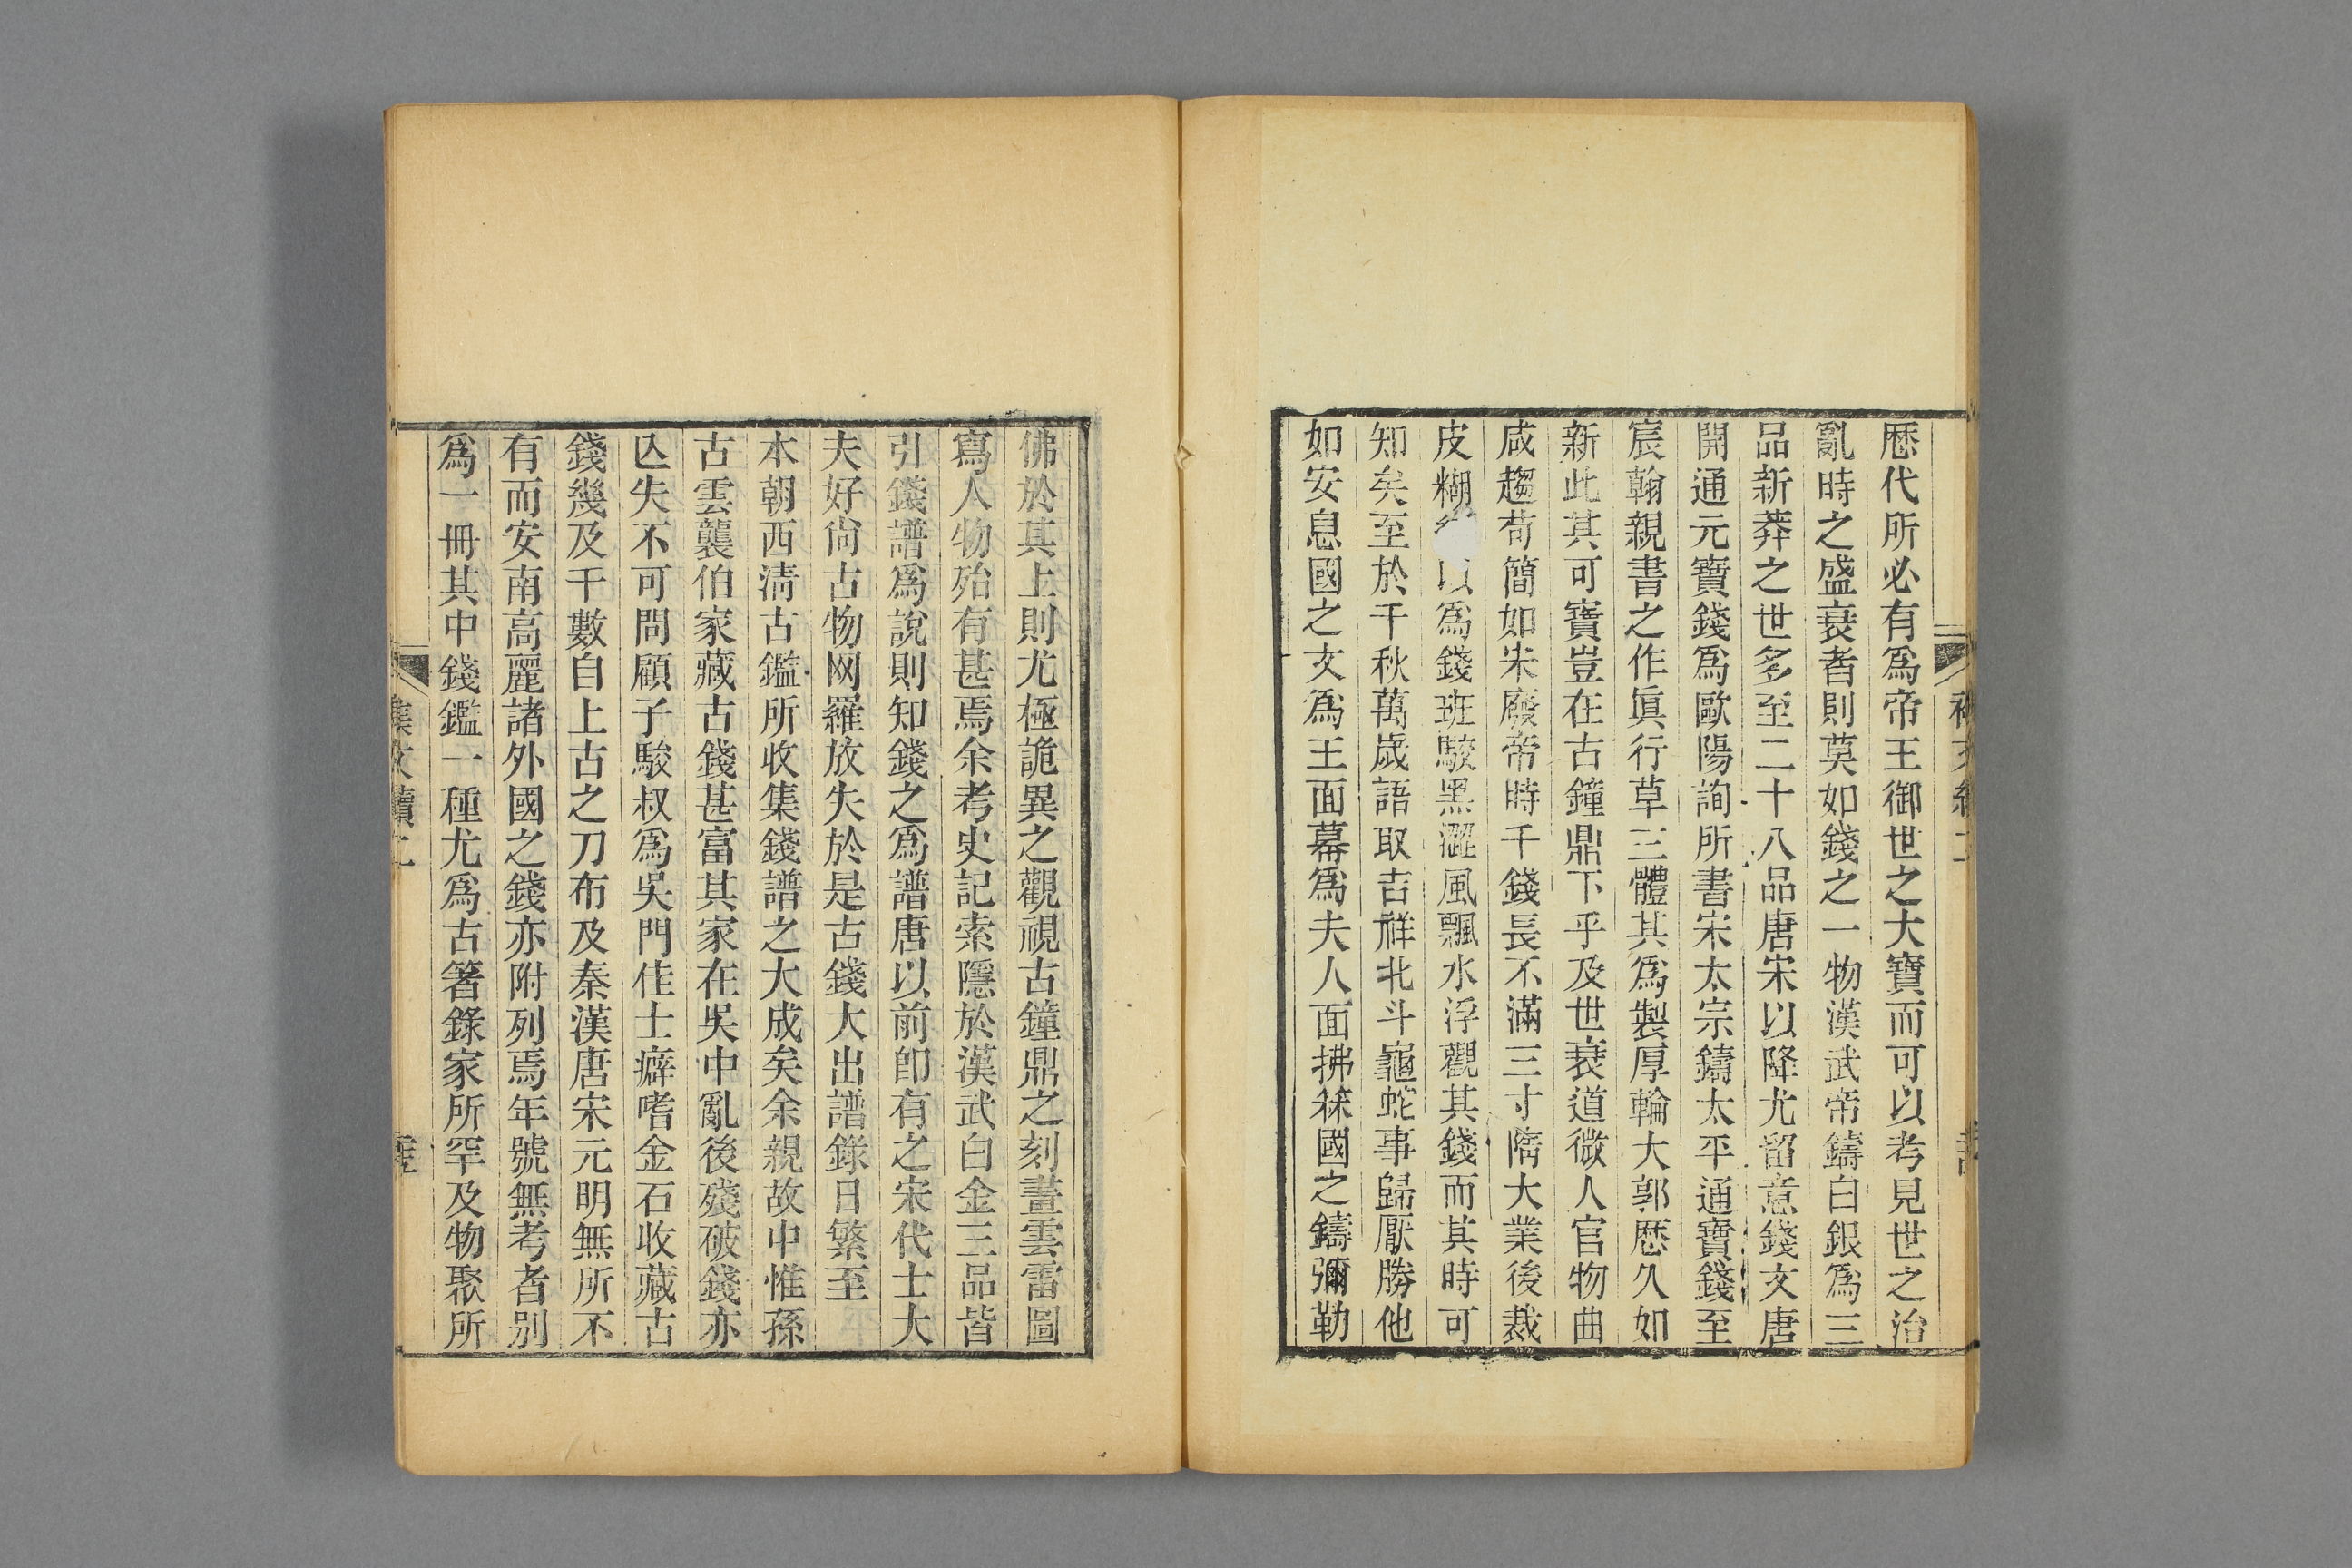 歷代所必有爲帝王御世之大寶而可以考見世之治
亂時之盛衰者則莫如錢之一物漢武帝鑄白銀爲三
品新莽之世多至二十八品唐宋以降尤留意錢文唐
開通元寶錢爲歐陽詢所書宋太宗鑄太平通寶錢至
宸翰親書之作眞行草三體其爲製厚輪大郭歷久如
新此其可寶豈在古鐘鼎下乎及世衰道微人官物曲
咸趨苟簡如宋廢帝時千錢長不滿三寸隋大業後裁
皮糊 以爲錢班駮黑澀風飄水浮觀其錢而其時可
知矣至於千秋萬歲語取吉祥北斗龜蛇事歸厭勝他
如安息國之文爲王面幕爲夫人面拂菻國之鑄彌勒
佛於其上則尤極詭異之觀視古鐘鼎之刻畫雲雷圖
寫人物殆有甚焉余考史記索隱於漢武白金三品皆
引錢譜爲說則知錢之爲譜唐以前卽有之宋代士大
夫好尙古物网羅放失於是古錢大出譜錄日繁至
本朝西淸古鑑所收集錢譜之大成矣余親故中惟孫
古雲襲伯家藏古錢甚富其家在吳中亂後殘破錢亦
亾失不可問顧子駿叔爲吳門佳士癖嗜金石收藏古
錢幾及千數自上古之刀布及秦漢唐宋元明無所不
有而安南高麗諸外國之錢亦附列焉年號無考者別
爲一冊其中錢鑑一種尤爲古箸錄家所罕及物聚所
集文續二